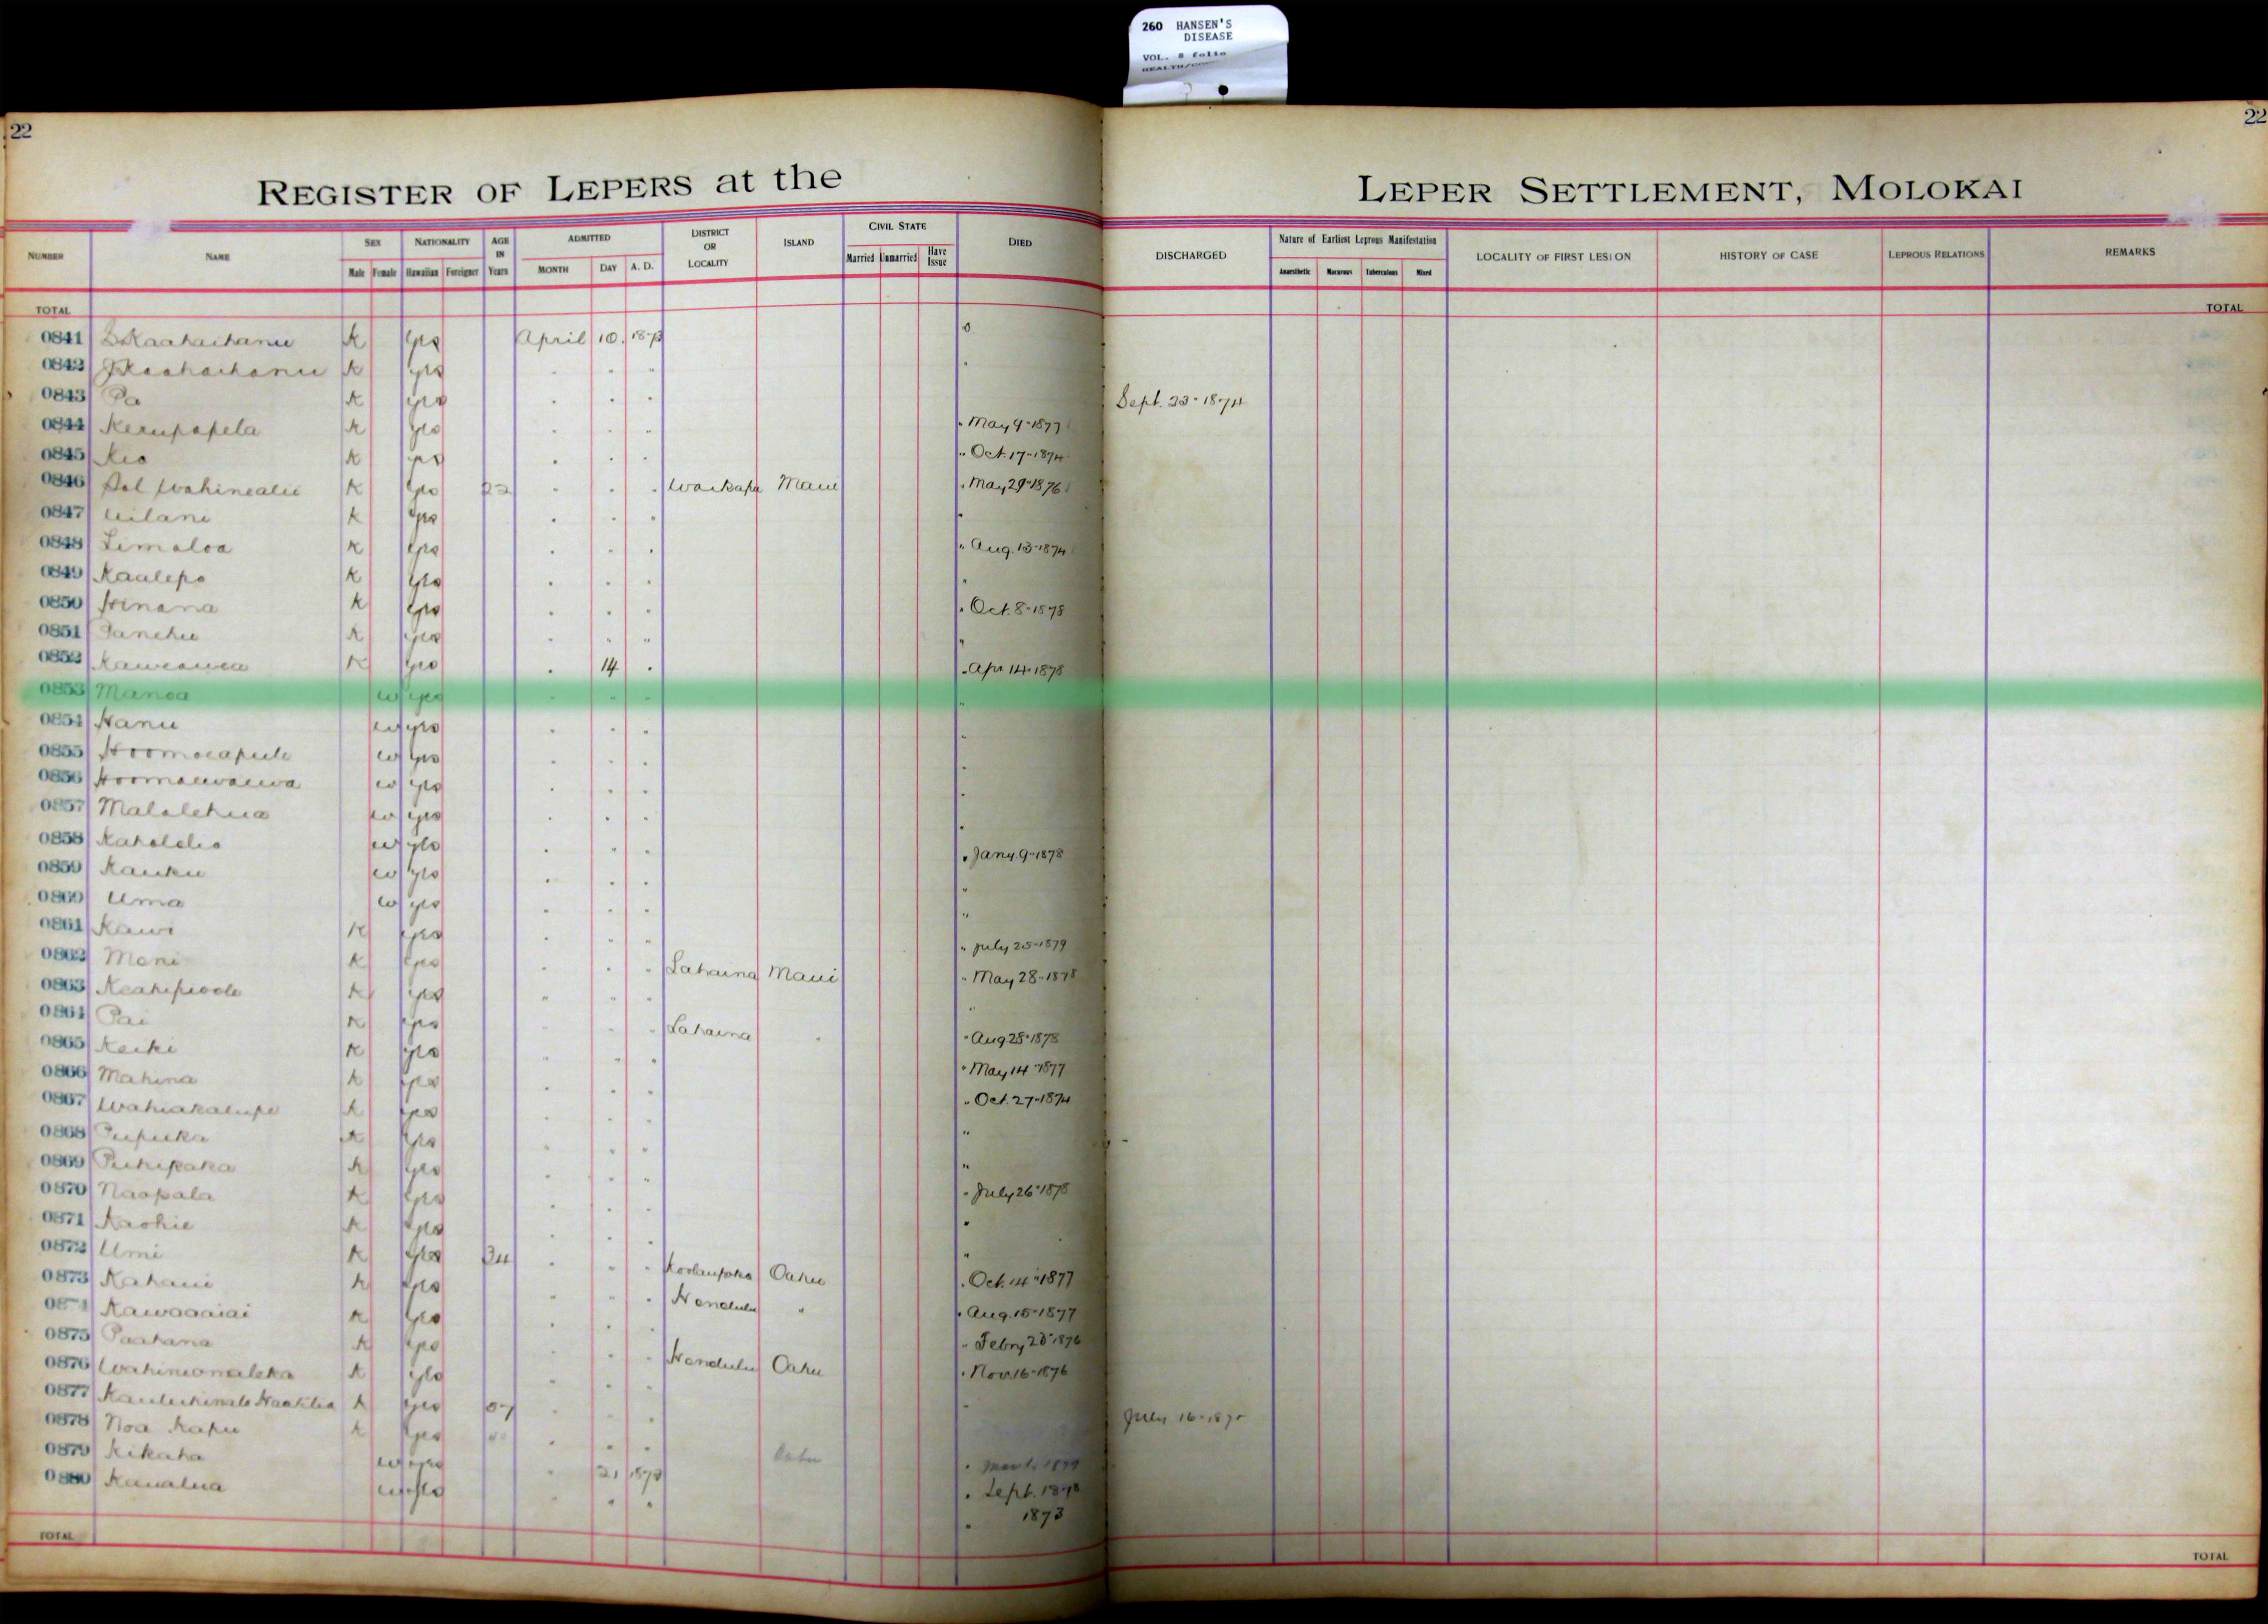 260 HANSEN'S
DISEASE
VOL. 8 folio
22
22
REGISTER OF LEPERS at the LEPER SETTLEMENT, MOLOKAI
NUMBER NAME SEX Male Female NATIONALITY Hawaiian Foreigner AGE IN Years ADMITTED MONTH DAY A. D. DISTRICT OR LOCALITY ISLAND CIVIL STATE Married Unmarried Have Issue DIED DISCHARGED Nature of Earliest Leprous Manifestation Anaesthetic Macurous Tuberculous Mixed LOCALITY OF FIRST LESION HISTORY OF CASE LEPROUS RELATIONS REMARKS
TOTAL TOTAL
0841 Kaahaihanu K yes April 10. 1873
0842 Kaahaihanu K yes " " "
0843 Pa K yes " " " Sept. 23-1874
0844 K yes " " " " May 9-1877
0845 Kio K yes " " " " Oct. 17-1874
0846 Wahinealii K yes 22 " " " Waikapu Maui " May 29-1876
0847 Leilani K yes " " "
0848 Limaloa K yes " " " " Aug. 13-1874
0849 Kaalepo K yes " " " "
0850 Hinana K yes " " " " Oct. 8-1878
0851 K yes " " " "
0852 K yes " 14 " " Apr 14-1878
0853 Manoa w yes " " " "
0854 Hanu w yes " " " "
0855 w yes " " " "
0856 Hoomanawanua w yes " " " "
0857 Malalehua w yes " " " "
0858 Kaholelio w yes " " " " Jany. 9-1878
0859 Kauku w yes " " " "
0860 Uma w yes " " " "
0861 Kawi K yes " " " " July 25-1879
0862 Mani K yes " " " Lahaina Maui " May 28-1878
0863 K yes " " " "
0864 Pai K yes " " " Lahaina " " Aug 28-1878
0865 Keiki K yes " " " " May 14-1877
0866 Mahina K yes " " " " Oct. 27-1874
0867 Wahiakalupe K yes " " " "
0868 Pupuka K yes " " " "
0869 Puhipaka K yes " " " " July 26-1878
0870 Naopala K yes " " " "
0871 Kaohie K yes " " " "
0872 Umi K yes 34 " " " Koolaupoko Oahu " Oct. 14-1877
0873 Kahaui K yes " " " Honolulu " " Aug. 15-1877
0874 Kawaaaiai K yes " " " " Febry 28-1876
0875 Paahana K yes " " " Honolulu Oahu " Nov 16-1876
0876 K yes " " " "
0877 K yes 57 " " " July 16-187
0878 Noa Kapu K yes " " " Oahu " 1879
0879 Kikaha w yes " 21 1873 " Sept. 1878
0880 Kanalua w yes " " " " 1873
TOTAL TOTAL